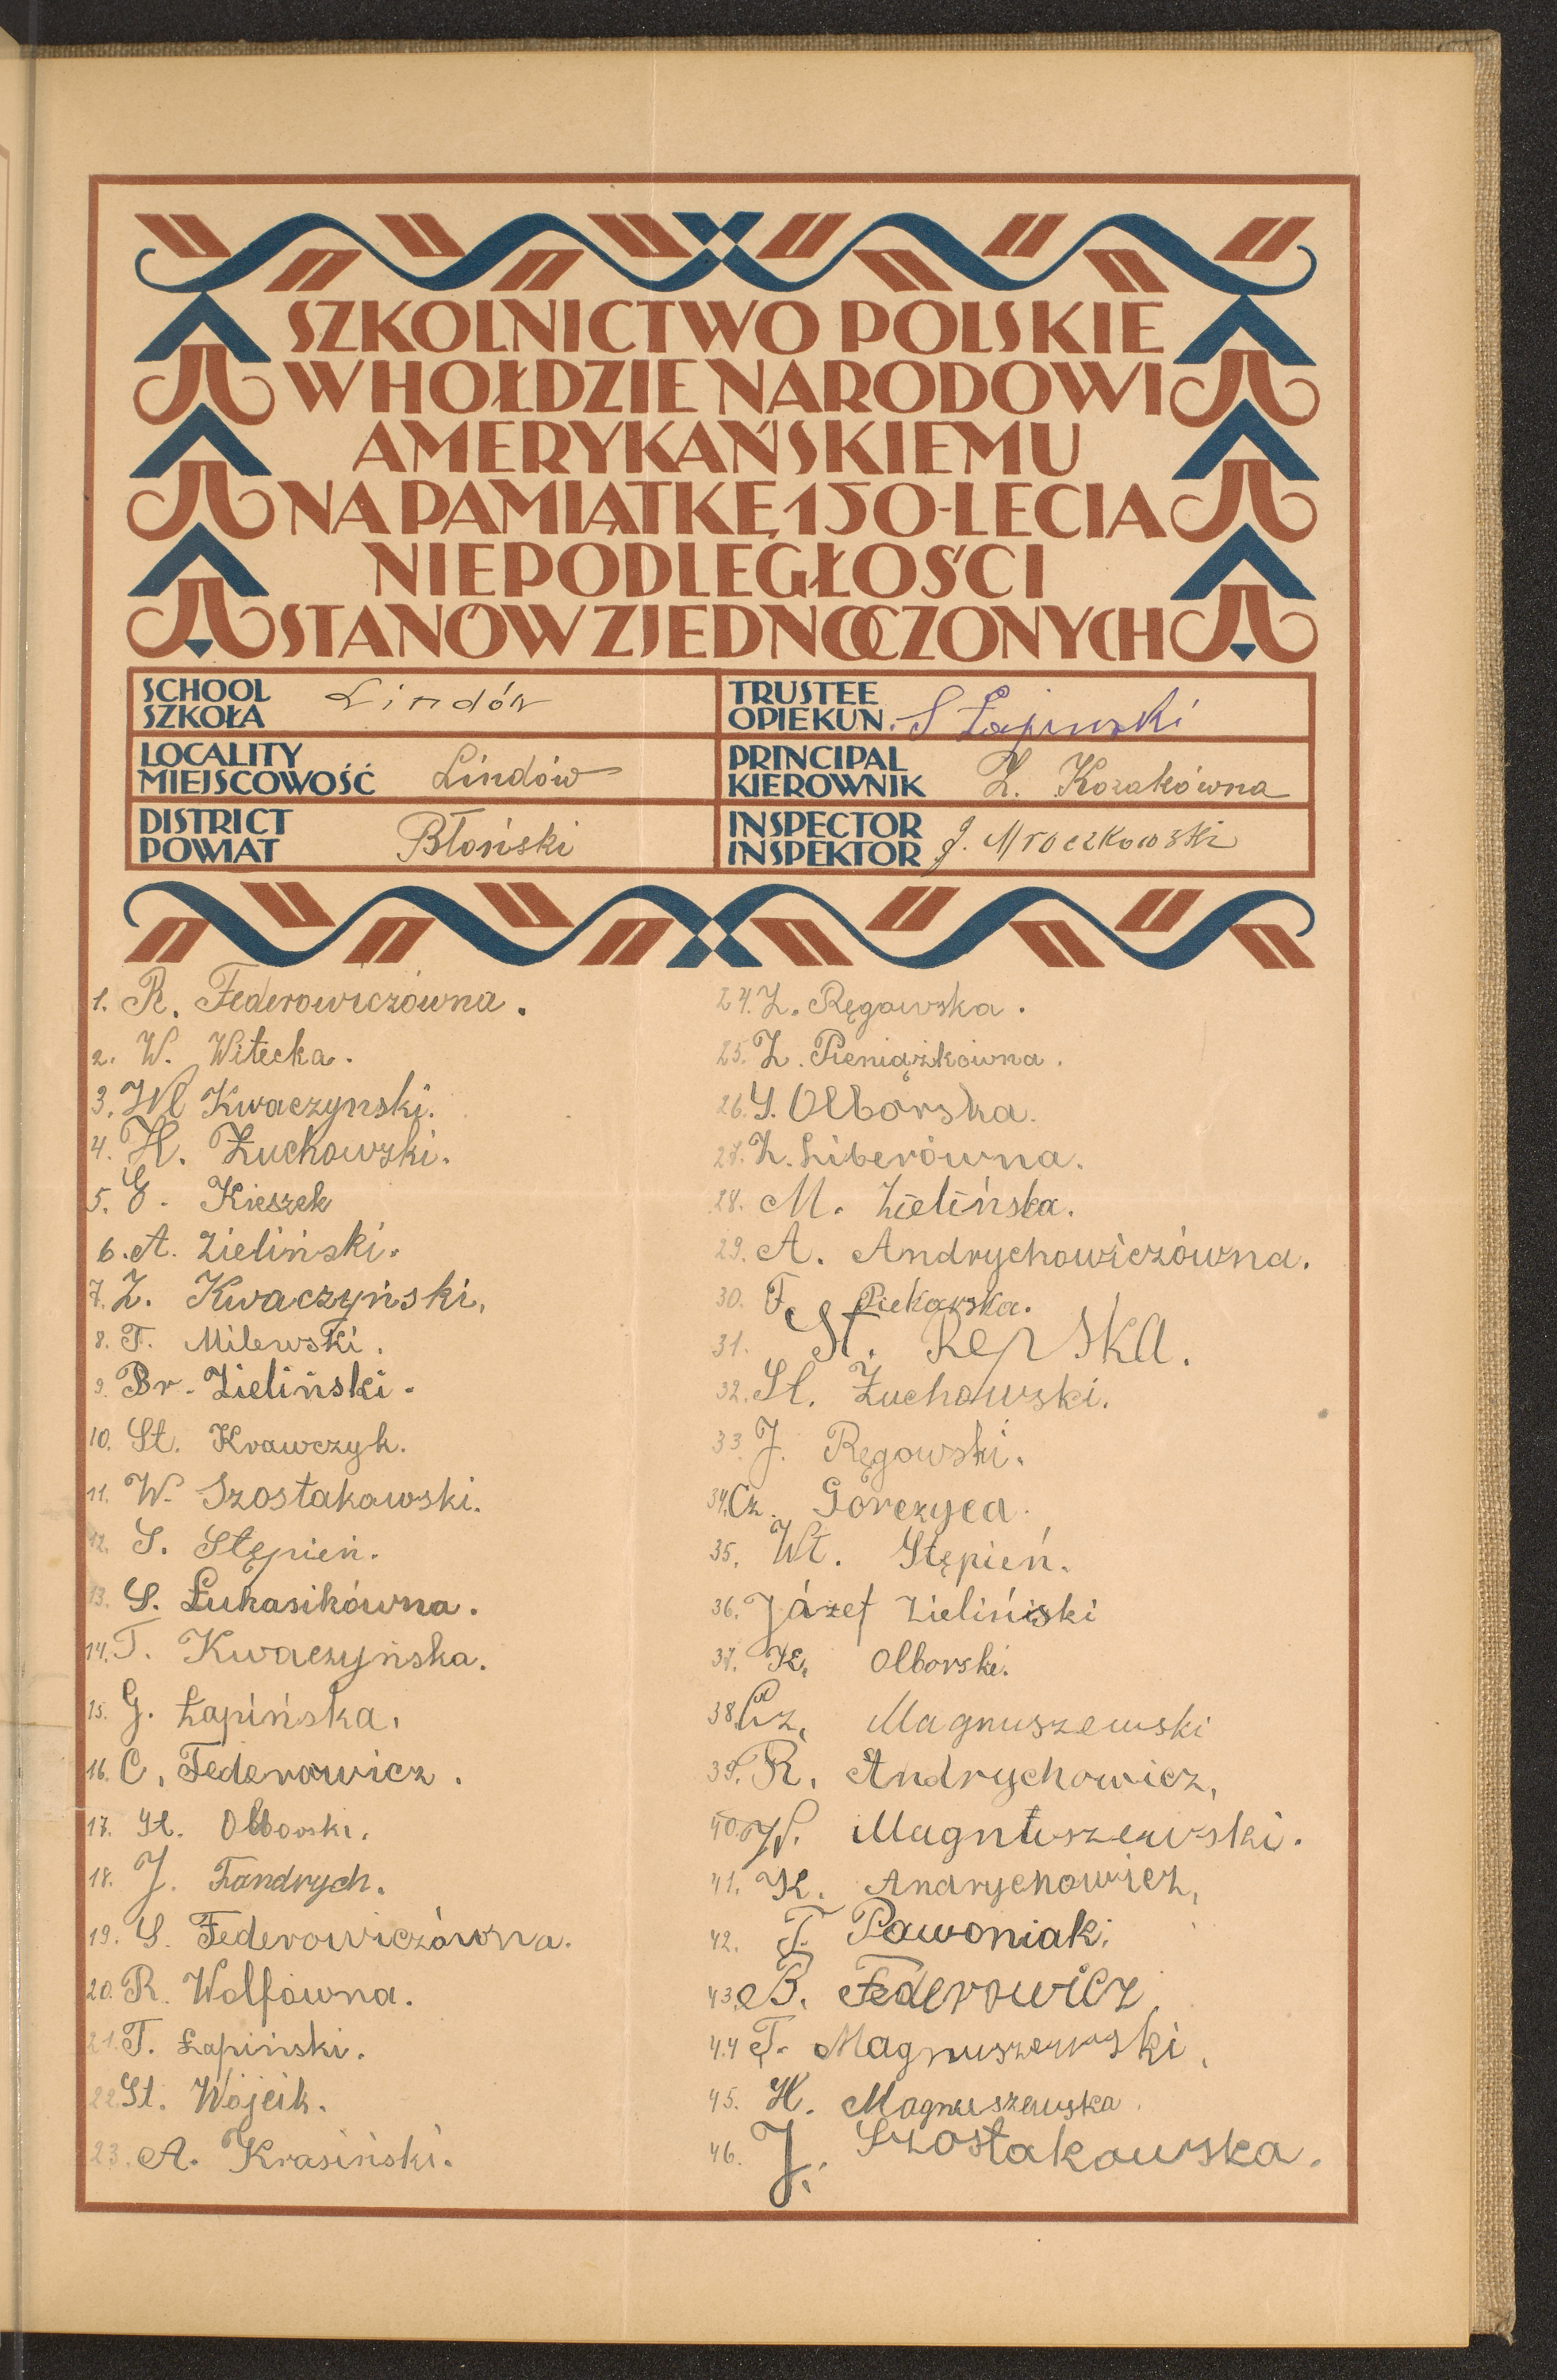 SZKOLNICTWO POLSKIE
W HOŁDZIE NARODOWI
AMERYKAŃSKIEMU
NA PAMIĄTKĘ 150-LECIA
NIEPODLEGŁOŚCI
STANÓW ZJEDNOCZONYCH
SCHOOL
SZKOŁA Lindów
TRUSTEE
OPIEKUN. S Łapiński
LOCALITY
MIEJSCOWOŚĆ Lindów
PRINCIPAL
KIEROWNIK Z. Kozakówna
DISTRICT
POWIAT Błoński
INSPECTOR
INSPEKTOR J. Mroczkowski
1. R. Federowiczówna.
2. W. Witecka.
3. Wł Kwaczynski.
4. H. Żuchowski.
5. E. Kieszek
6. A. Zieliński.
7. Z. Kwaczyński,
8. T. Milewski.
9. Br. Zieliński.
10. St. Krawczyk.
11. W. Szostakowski.
12. S. Stępień.
13. S. Łukasikówna.
14. T. Kwaczyńska.
15. G. Łapińska.
16. C. Federowicz.
17. St. Olborski.
18. J. Fandrych.
19. S. Federowiczówna.
20. R. Wolfówna.
21. T. Łapiński.
22. St. Wójcik.
23. A. Krasiński.
24. Z. Ręgowska.
25. Z. Pieniążkówna.
26. Y. Olborska.
27. Z. Liberówna.
28. M. Zielińska.
29. A. Andrychowiczówna.
30. F. Piekarska.
31. St. Repska.
32. St. Żuchowski.
33. J. Ręgowski.
34. Cz. Gorczyca.
35. Wł. Stępień.
36. Józef Zieliński
37. K. Olborski.
38. Cz. Magnuszewski
39. R. Andrychowicz,
40. W. Magnuszewski.
41. K. Andrychowicz,
42. T. Pawoniak.
43. B. Federowicz
44 T. Magnuszewski,
45. H. Magnuszewska.
46. J. Szostakowska.